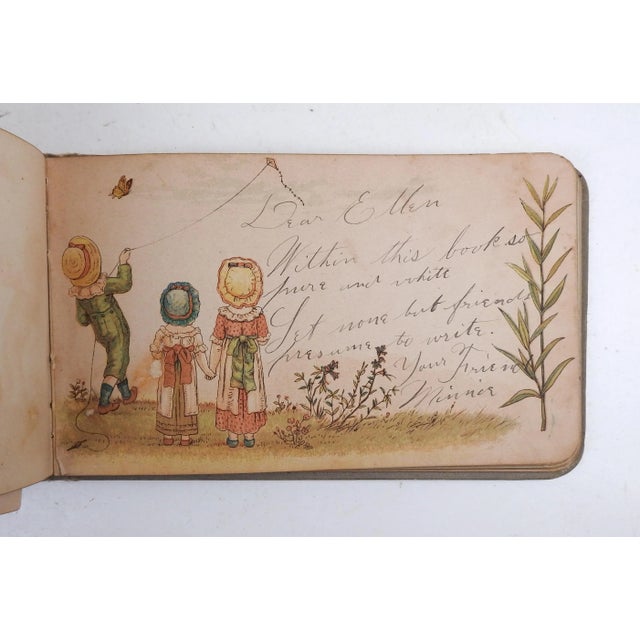 Dear Ellen
Within this book so
pure and white
Let none but friends
presume to write.
Your Frien
Minnie